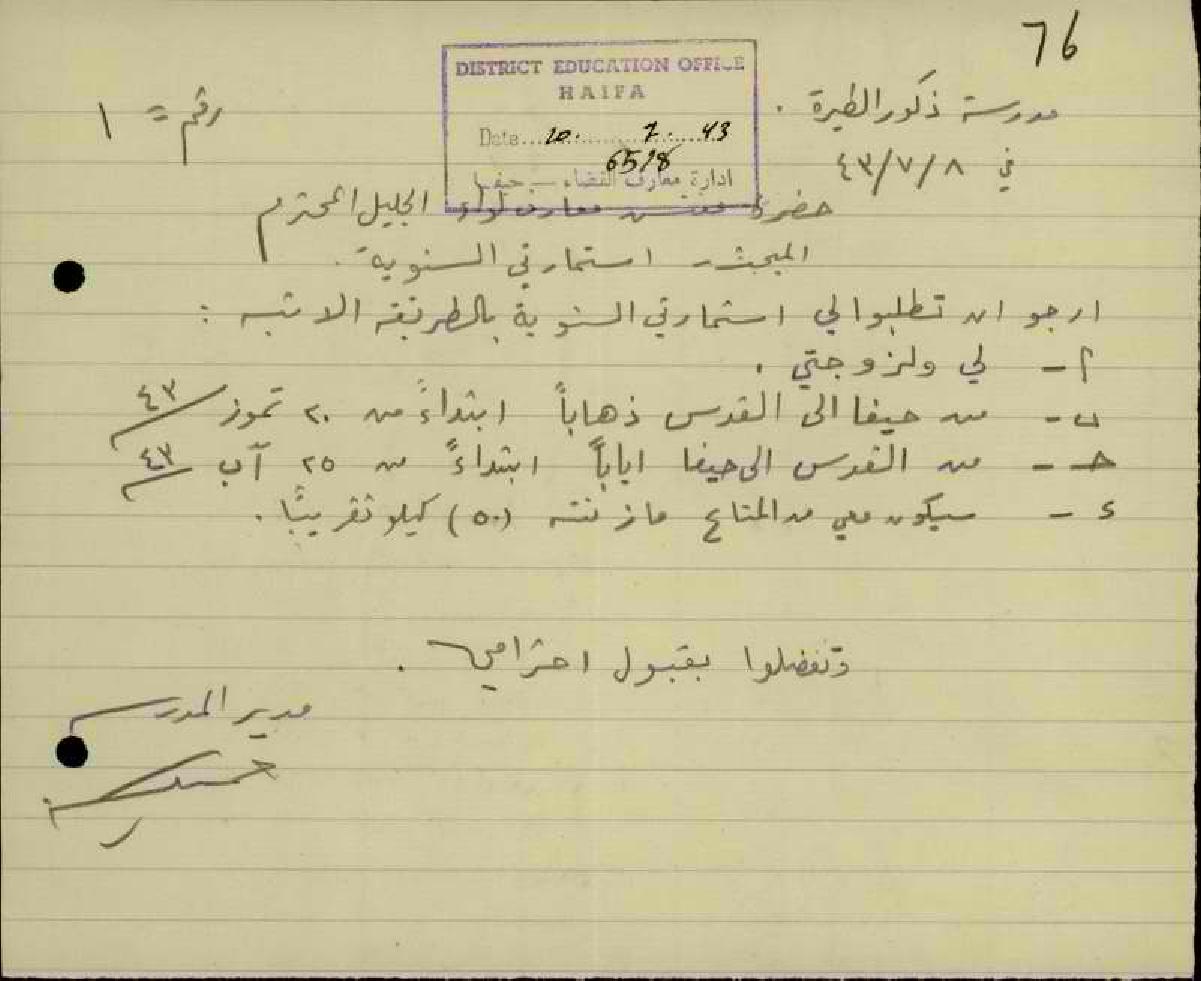 76
DISTRICT EDUCATION OFFICE
HAIFA
Date 10. 7. 43
6518
ادارة معارف القضاء — حيفا
مدرسة ذكور الطيرة .
رقم = ١
في ٤٣/٧/٨
حضرة مفتش معارف لواء الجليل المحترم
المبحث - استمارتي السنوية .
ارجو ان تطلبوا لي استمارتي السنوية بالطريقة الاتية :
أ - لي ولزوجتي .
ب - من حيفا الى القدس ذهاباً ابتداءً من ٢٠ تموز ٤٣
ح - من القدس الى حيفا اياباً ابتداءً من ٢٥ آب ٤٣
د - سيكون معي من المتاع ما زنته (٥٠) كيلو تقريباً .
وتفضلوا بقبول احترامي .
مدير المدرسة